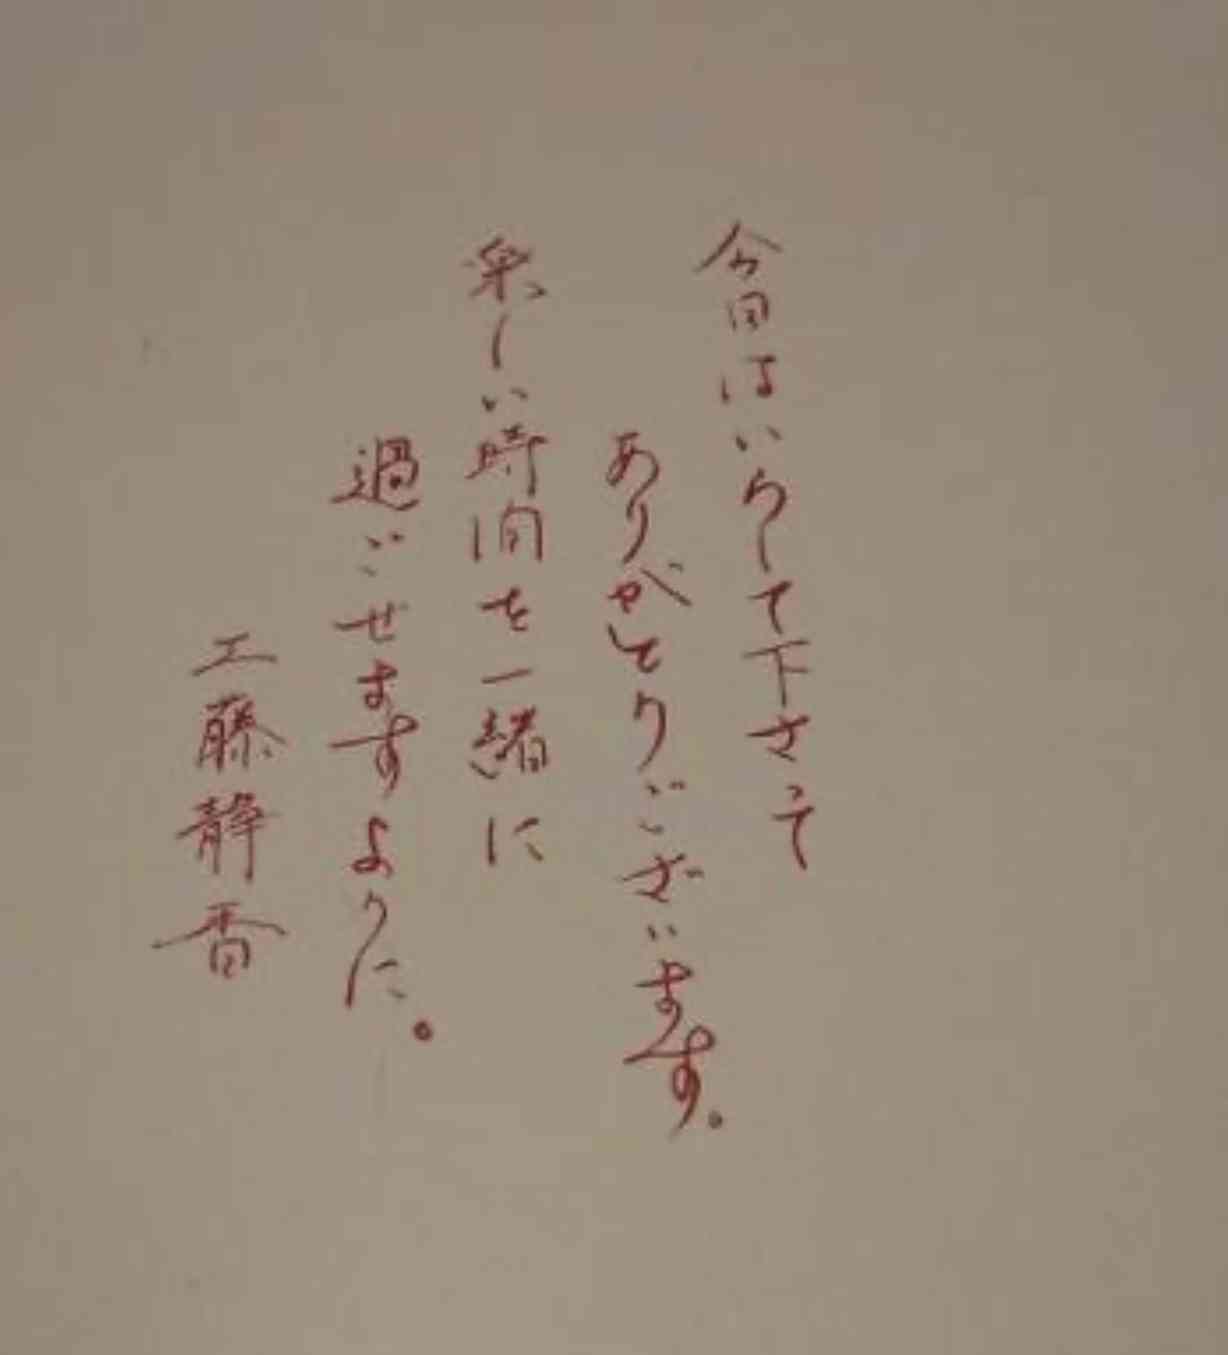 今回はいらして下さって
ありがとうございます。
楽しい時間を一緒に
過ごせますように。
工藤静香